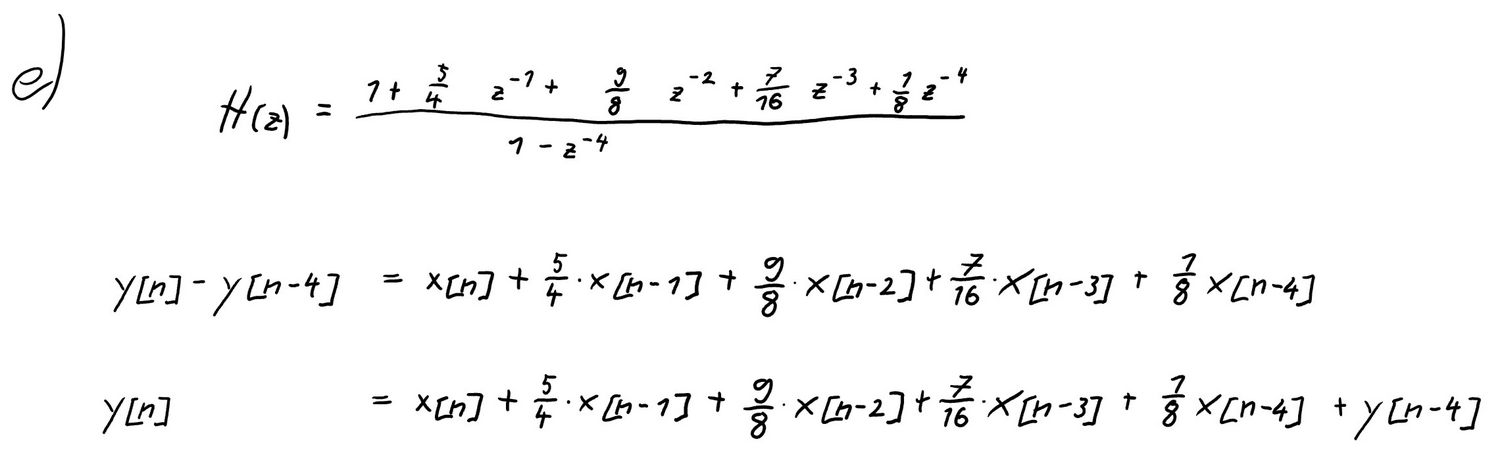 e)
H(z) = (1 + 5/4 z^-1 + 9/8 z^-2 + 7/16 z^-3 + 1/8 z^-4) / (1 - z^-4)
y[n] - y[n-4] = x[n] + 5/4 · x[n-1] + 9/8 · x[n-2] + 7/16 · x[n-3] + 1/8 x[n-4]
y[n] = x[n] + 5/4 · x[n-1] + 9/8 · x[n-2] + 7/16 · x[n-3] + 1/8 x[n-4] + y[n-4]